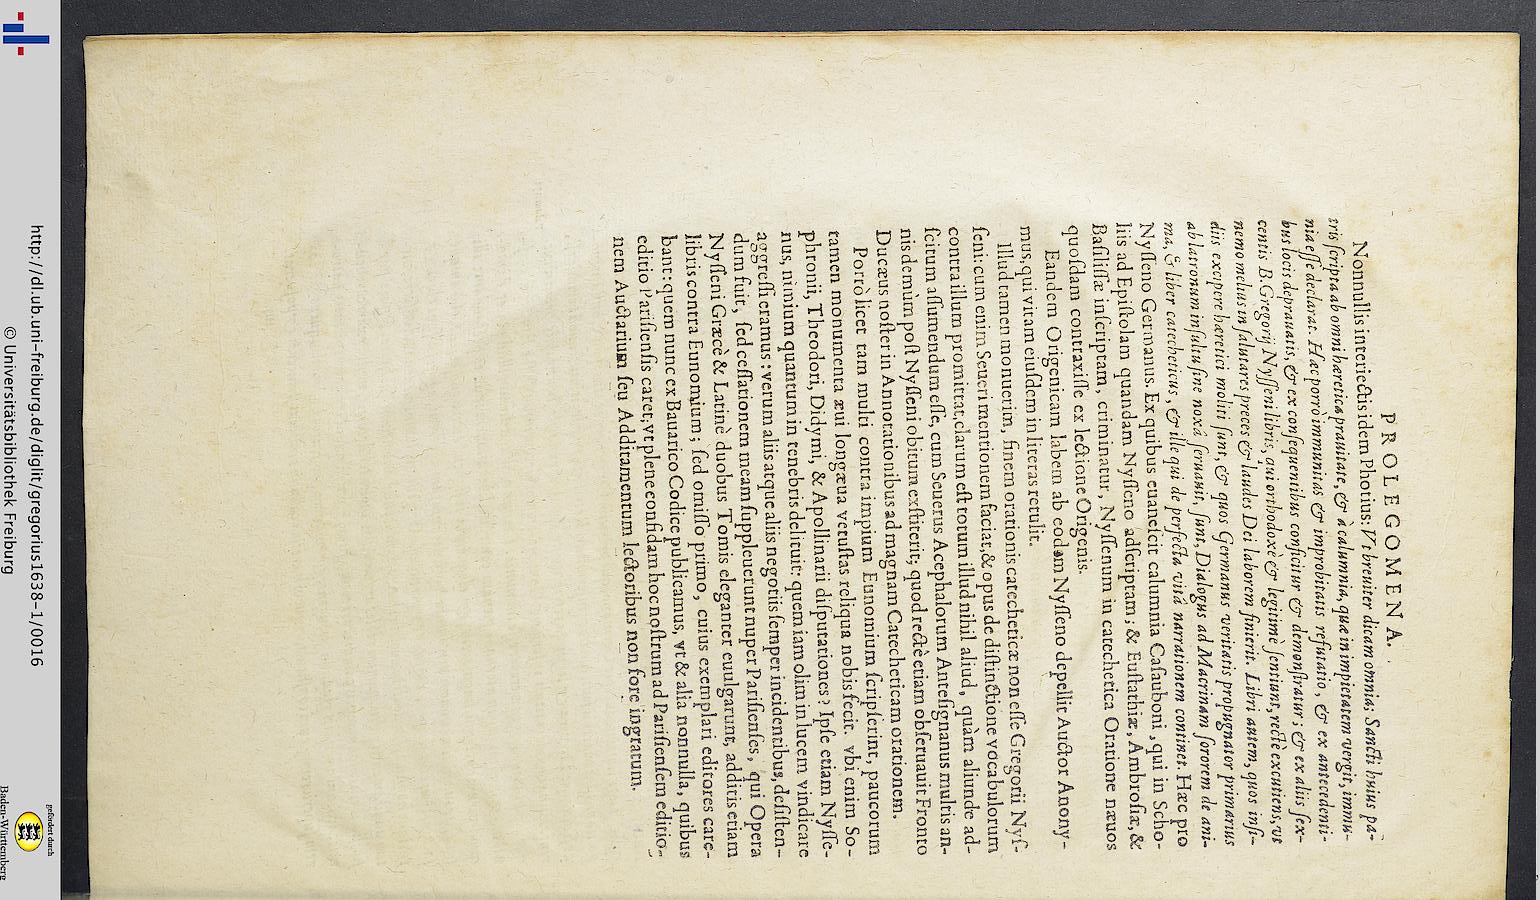 PROLEGOMENA.
Nonnullis interiectis idem Photius: Vt breuiter dicam omnia; Sancti huius pa-
tris scripta ab omni hæretica prauitate, & à calumnia, quæ in impietatem vergit, immu-
nia esse declarat. Hæc porrò immunitas & improbitatis refutatio, & ex antecedenti-
bus locis deprauatis, & ex consequentibus conficitur & demonstratur; & ex aliis sex-
centis B. Gregorij Nysseni libris, qui orthodoxè & legitimè sentiunt, rectè excutiens, vt
nemo melius in salutares preces & laudes Dei laborem finierit. Libri autem, quos insi-
diis excipere hæretici moliti sunt, & quos Germanus veritatis propugnator primarius
ab latronum insultu sine noxâ seruauit, sunt, Dialogus ad Macrinam sororem de ani-
ma, & liber catecheticus, & ille qui de perfecta vitâ narrationem continet. Hæc pro
Nysseno Germanus. Ex quibus euanescit calumnia Casauboni, qui in Scho-
liis ad Epistolam quandam Nysseno adscriptam; & Eustathiæ, Ambrosiæ, &
Basilissæ inscriptam, criminatur, Nyssenum in catechetica Oratione næuos
quosdam contraxisse ex lectione Origenis.
Eandem Origenicam labem ab eodem Nysseno depellit Auctor Anony-
mus, qui vitam eiusdem in literas retulit.
Illud tamen monuerim, finem orationis catecheticæ non esse Gregorii Nys-
seni: cum enim Seueri mentionem faciat, & opus de distinctione vocabulorum
contra illum promittat, clarum est totum illud nihil aliud, quàm aliunde ad-
scitum assumendum esse, cum Seuerus Acephalorum Antesignanus multis an-
nis demùm post Nysseni obitum exstiterit; quod rectè etiam obseruauit Fronto
Ducæus noster in Annotationibus ad magnam Catecheticam orationem.
Porrò licet tam multi contra impium Eunomium scripserint, paucorum
tamen monumenta æui longæua vetustas reliqua nobis fecit. vbi enim So-
phronii, Theodori, Didymi, & Apollinarii disputationes? Ipse etiam Nysse-
nus, nimium quantum in tenebris delituit: quem iam olim in lucem vindicare
aggressi eramus: verum aliis atque aliis negotiis semper incidentibus, desisten-
dum fuit, sed cessationem meam suppleuerunt nuper Parisienses, qui Opera
Nysseni Græcè & Latinè duobus Tomis eleganter euulgarunt, additis etiam
libris contra Eunomium; sed omisso primo, cuius exemplari editores care-
bant: quem nunc ex Bauarico Codice publicamus, vt & alia nonnulla, quibus
editio Parisiensis caret, vt plene confidam hoc nostrum ad Parisiensem editio-
nem Auctarium seu Additamentum lectoribus non fore ingratum.
http://dl.ub.uni-freiburg.de/diglit/gregorius1638-1/0016
© Universitätsbibliothek Freiburg
gefördert durch
Baden-Württemberg